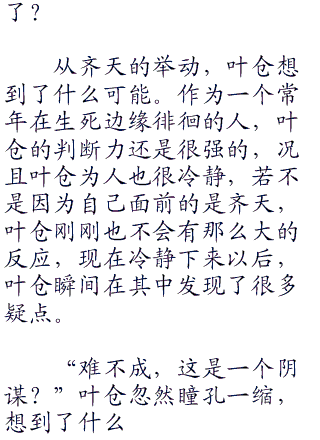 了？
从齐天的举动，叶仓想
到了什么可能。作为一个常
年在生死边缘徘徊的人，叶
仓的判断力还是很强的，况
且叶仓为人也很冷静，若不
是因为自己面前的是齐天，
叶仓刚刚也不会有那么大的
反应，现在冷静下来以后，
叶仓瞬间在其中发现了很多
疑点。
“难不成，这是一个阴
谋？”叶仓忽然瞳孔一缩，
想到了什么